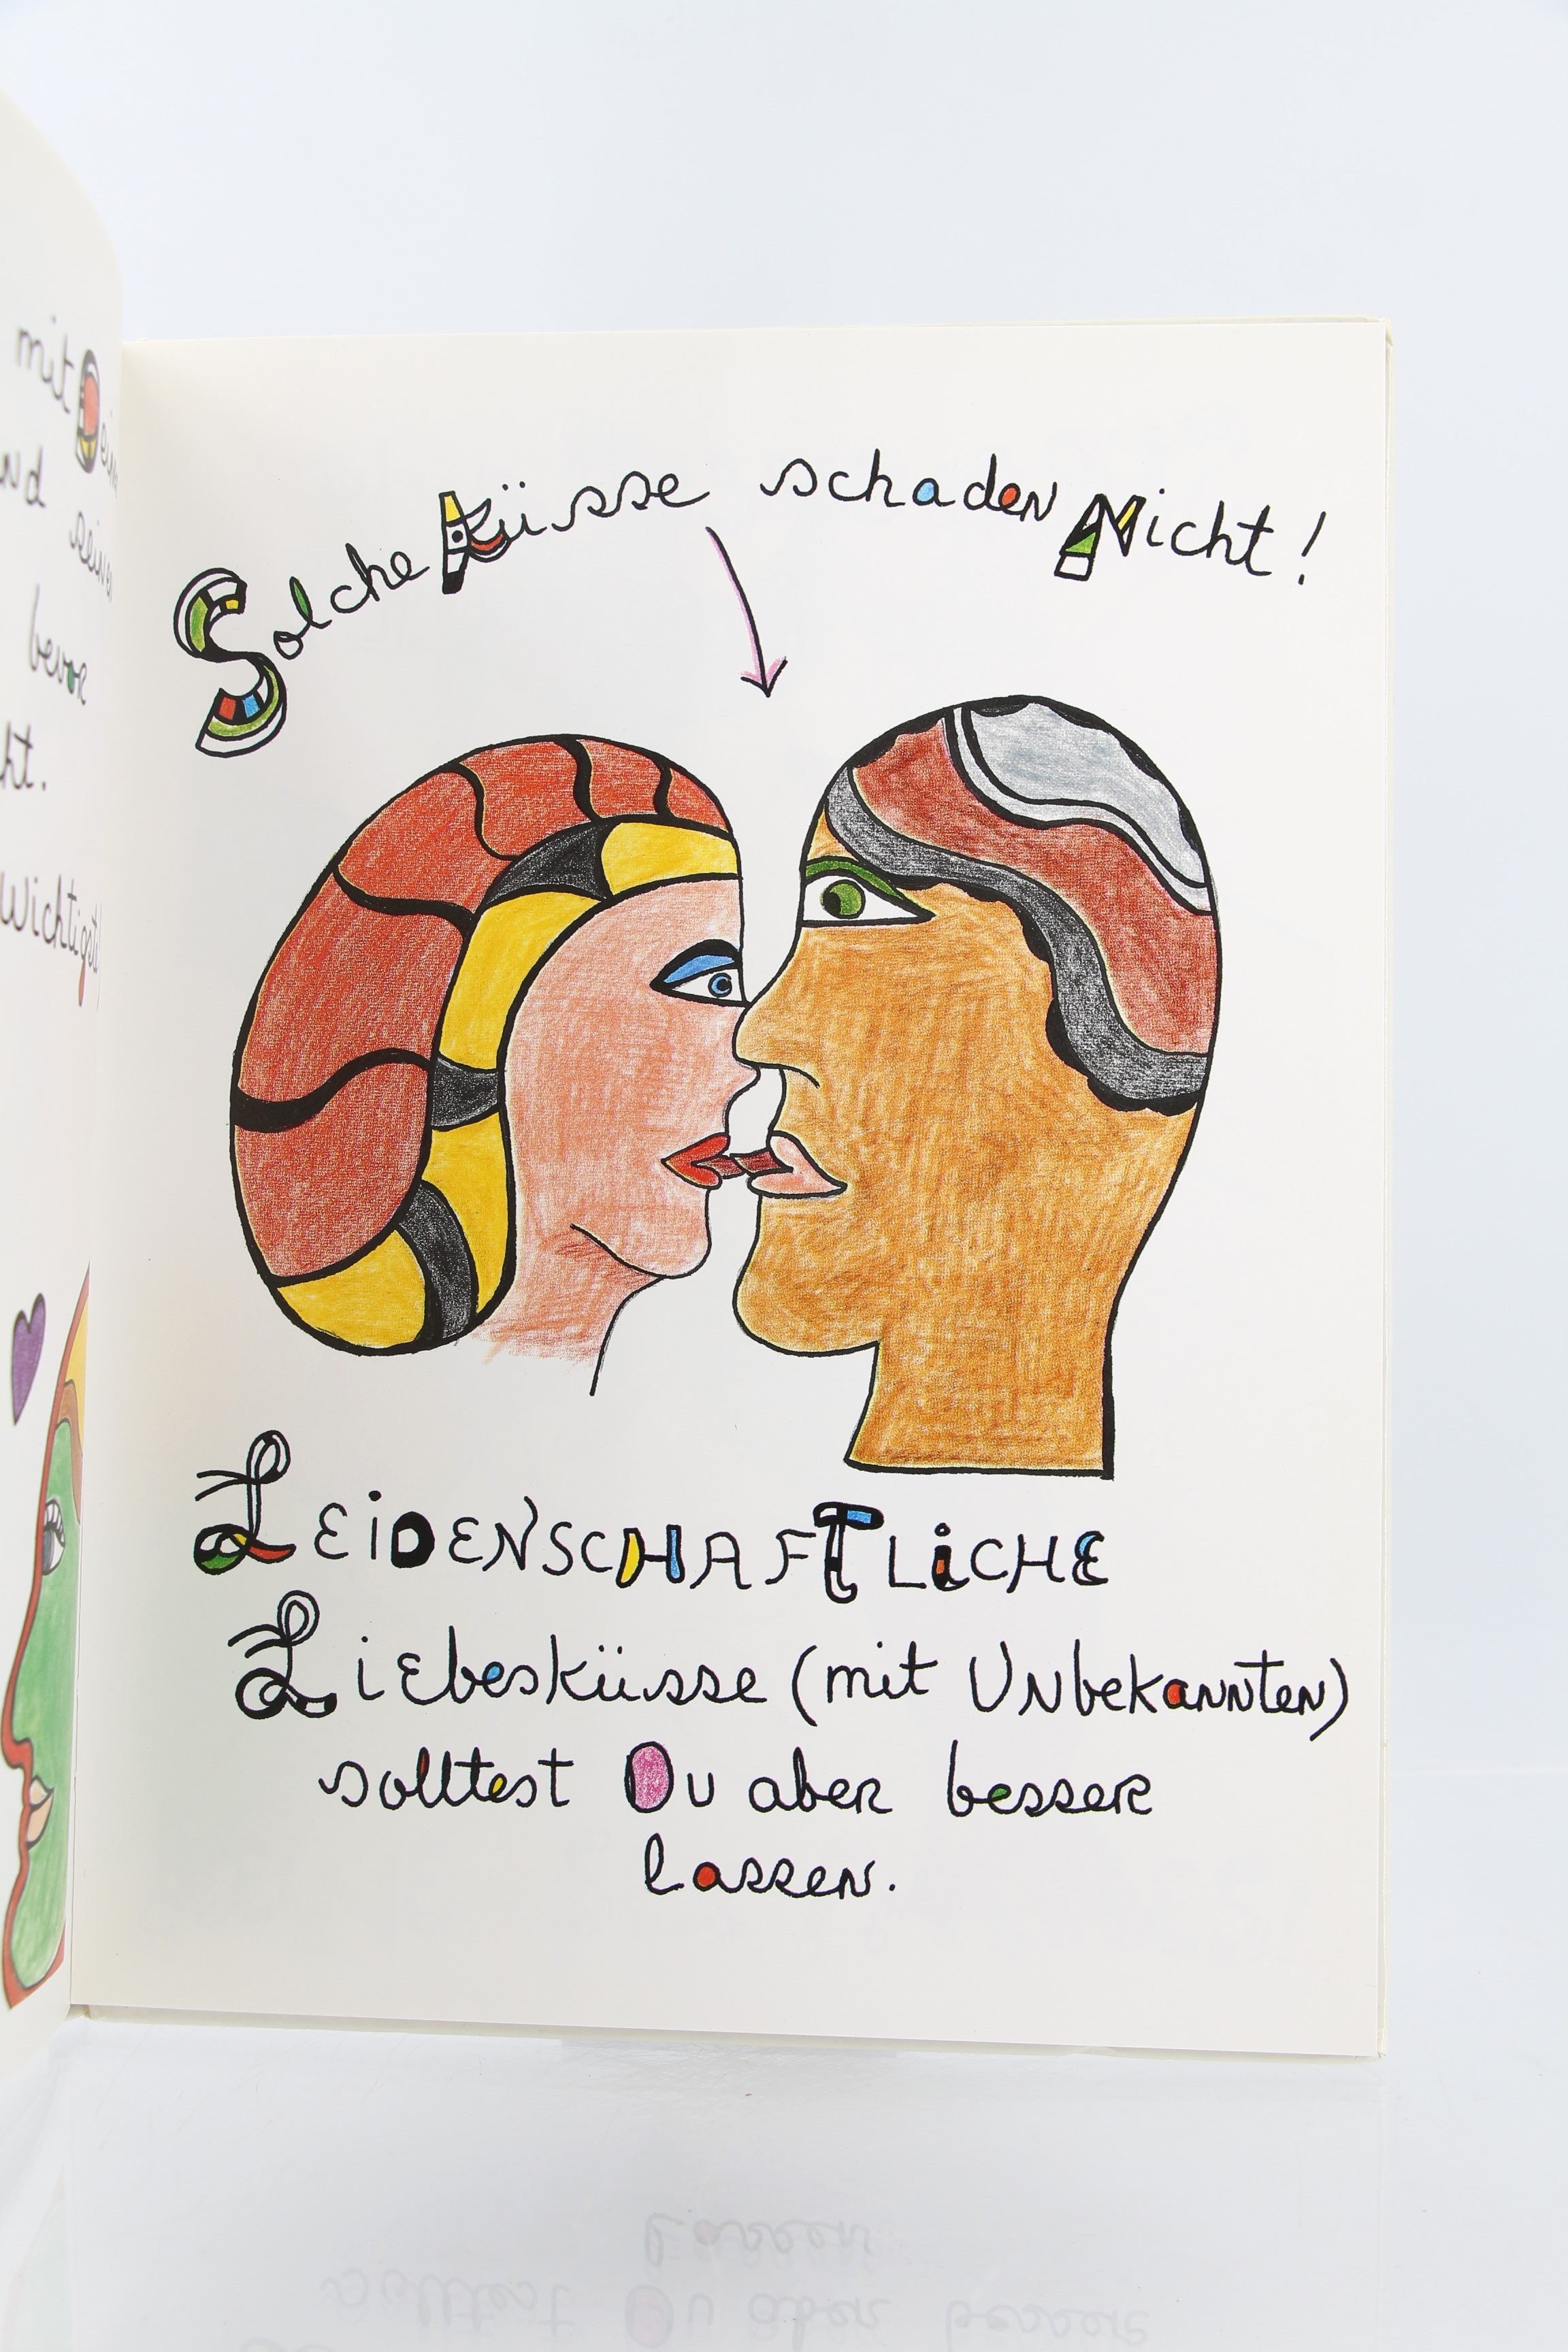 mit
bevor
Solche Küsse schaden Nicht!
LEiDENSCHAFTLiCHE
Liebesküsse (mit Unbekannten)
solltest Du aber besser
lassen.